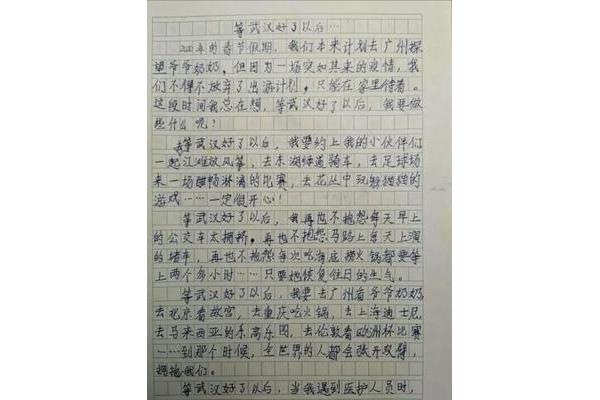 等武汉好了以后…
2020年的春节假期，我们本来计划去广州探
望爷爷奶奶，但因为一场突如其来的疫情，我
们不得不放弃了出游计划，只能在家里待着。
这段时间我总在想，等武汉好了以后，我要做
些什么呢？
等武汉好了以后，我要约上我的小伙伴们
一起江滩放风筝，去东湖绿道骑车，去足球场
来一场酣畅淋漓的比赛，去花丛中玩躲猫猫的
游戏……一定很开心！
等武汉好了以后，我再也不抱怨每天早上
的公交车太拥挤，再也不抱怨马路上每天上演
的堵车，再也不抱怨每次吃海底捞火锅都要等
上两个多小时……只要她恢复往日的生气。
等武汉好了以后，我要去广州看爷爷奶奶，
去北京看故宫，去重庆吃火锅，去上海迪士尼，
去马来西亚的乐高乐园，去伦敦看欧洲杯比赛
……到那个时候，全世界的人都会张开双臂，
拥抱我们。
等武汉好了以后，当我遇到医护人员时，